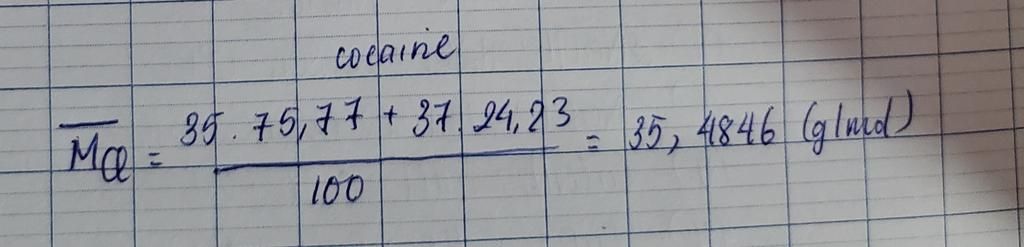 cocaine
M̅Cl = 35.75,77 + 37.24,23 / 100 = 35,4846 (g/mol)